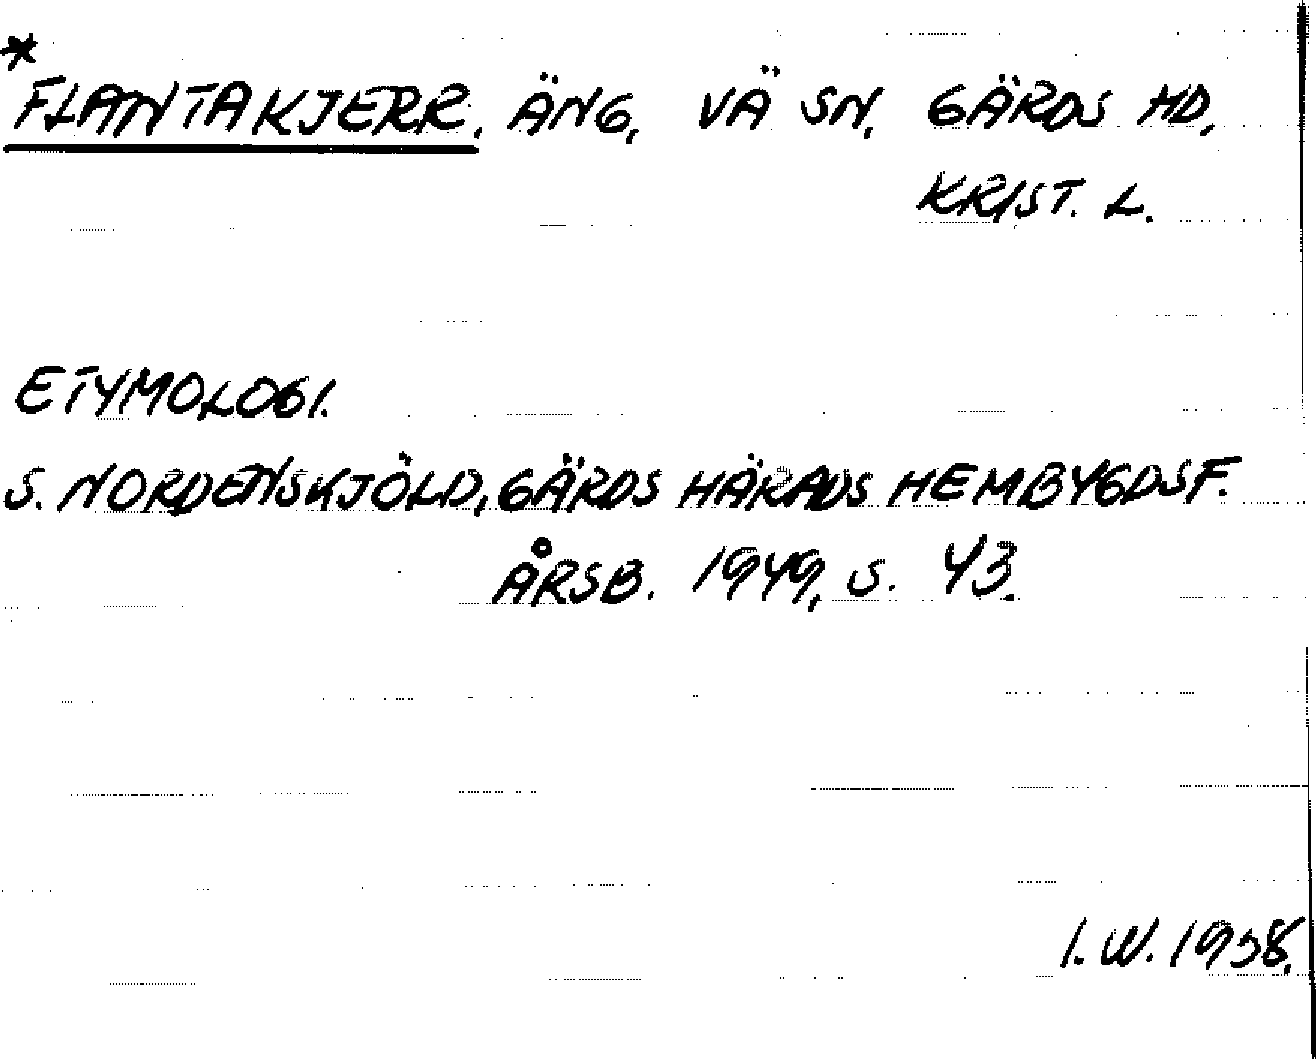 *
FLANTAKJERR, ÄNG, VÄ SN, GÄRDS HD,
KRIST. L.
ETYMOLOGI.
S. NORDENSKJÖLD, GÄRDS HÄRADS HEMBYGDSF.
ÅRSB. 1949, S. 43.
I.W. 1958.